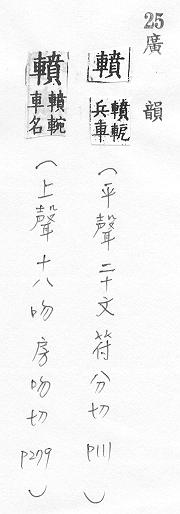 25廣韻
轒
轒輼兵車
(平聲二十文符分切P111)
轒
轒輓車名
(上聲十八吻房吻切P279)